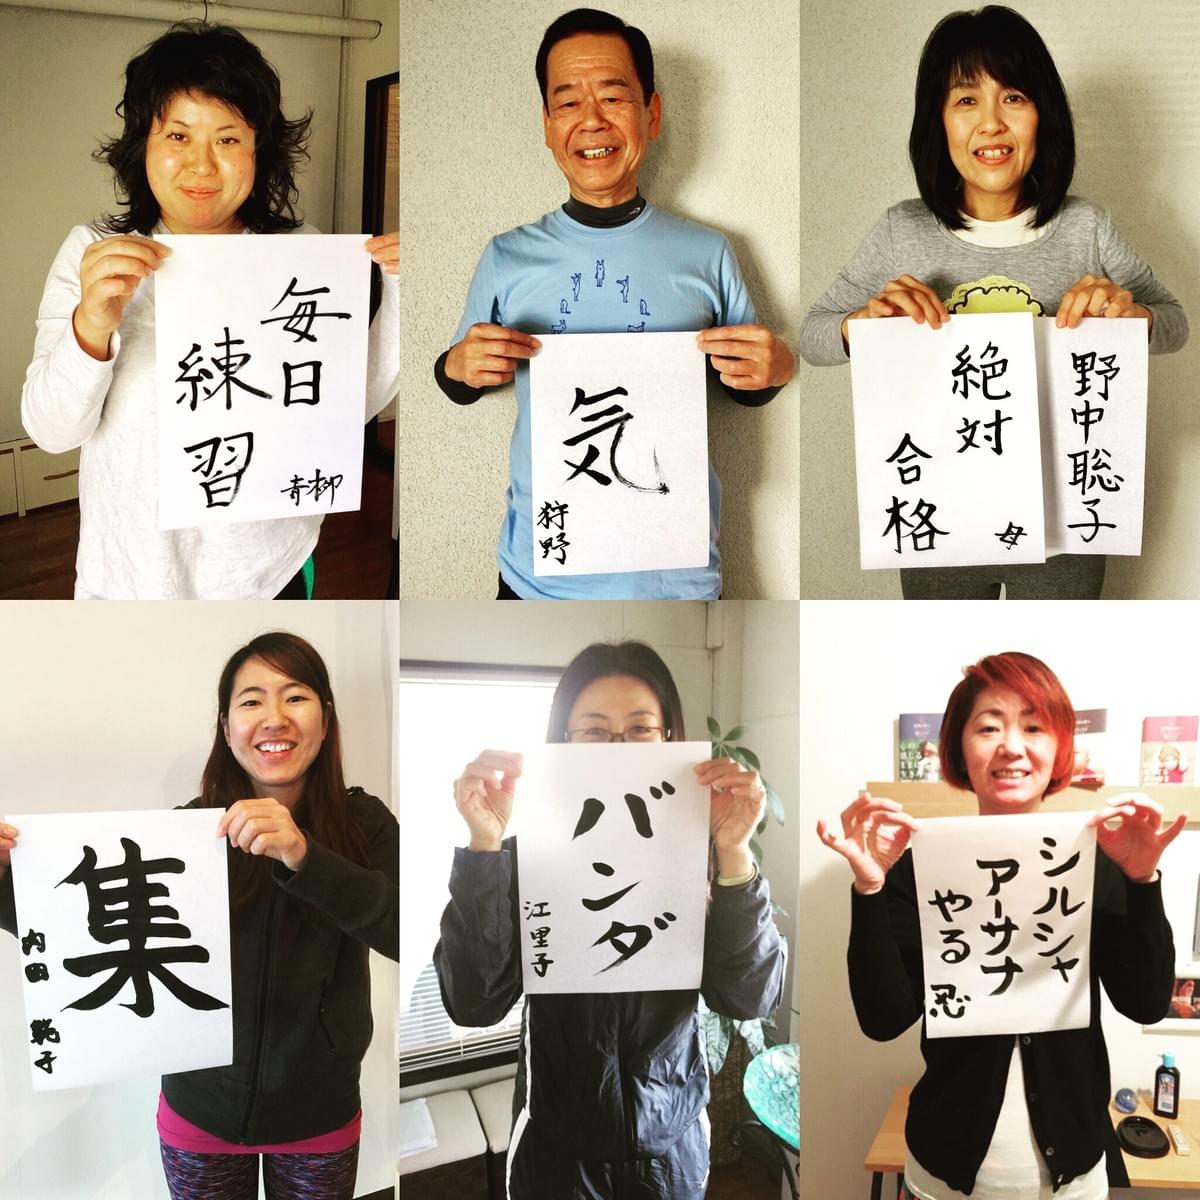 毎日
練習
青柳
気
狩野
野中聡子
絶対
合格
母
集
内田
バンダ
江里子
シルシャ
アーサナ
やる
忍